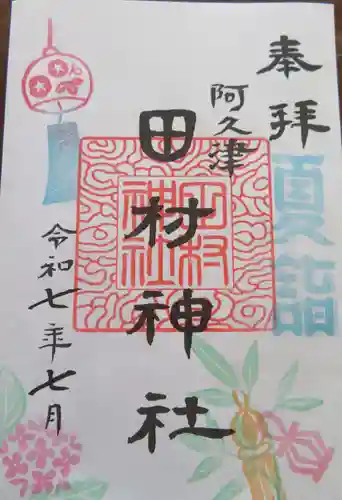 奉拝
夏詣
阿久津
田村神社
田村
神社
令和七年七月